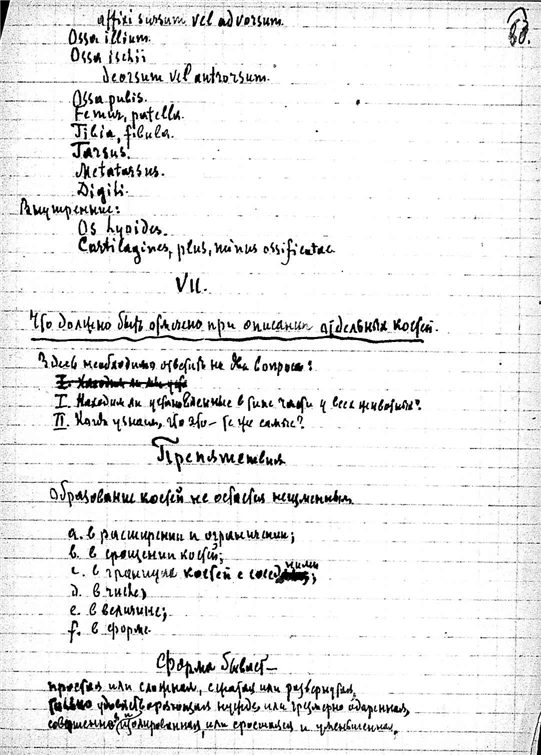 affixi sursum vel advorsum.
Ossa illium.
Ossa ischii
deorsum vel antrorsum.
Ossa pubis.
Femur, patella.
Tibia, fibula.
Tarsus.
Metatarsus.
Digiti.
Внутренние:
Os hyoides.
Cartilagines, plus, minus ossificatae.
VII.
Что должно быть отмечено при описании отдельных костей.
Здесь необходимо ответить на два вопроса:
I. Находим ли мы
I. Находим ли установленные в типе части у всех животных?
II. Когда узнаем, что это – те же самые?
Препятствия
Образование костей не остается неизменным
a. в расширении и ограничении;
b. в сращении костей;
c. в границах костей с соседними;
d. в числе;
e. в величине;
f. в форме.
Форма бывает –
простая или сложная, сжатая или развернутая,
только удовлетворяющая нужде или чрезмерно одаренная,
совершенно изолированная, или сросшаяся и уменьшенная.